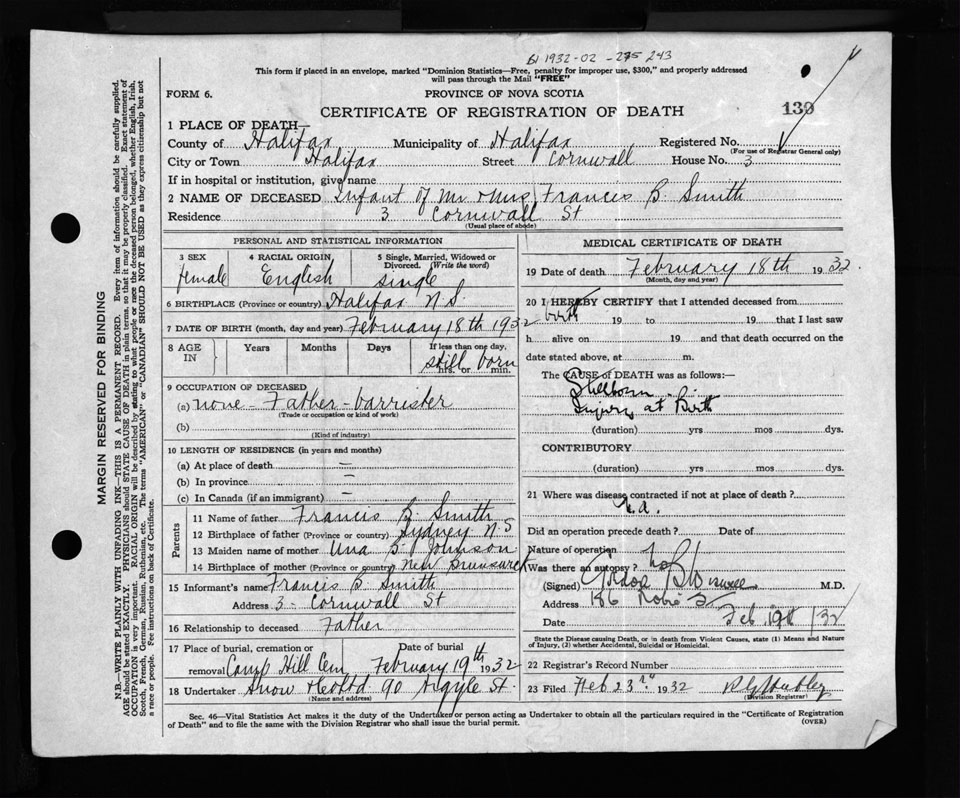 61 1932-02-275243
This form if placed in an envelope, marked "Dominion Statistics—Free, penalty for improper use, $300," and properly addressed
will pass through the Mail "FREE"
FORM 6.
PROVINCE OF NOVA SCOTIA
CERTIFICATE OF REGISTRATION OF DEATH
130
1 PLACE OF DEATH—
County of Halifax Municipality of Halifax Registered No.
(For use of Registrar General only)
City or Town Halifax Street Cornwall House No. 3
If in hospital or institution, give name
2 NAME OF DECEASED Infant of Mr & Mrs Francis B. Smith
Residence 3 Cornwall St
(Usual place of abode)
PERSONAL AND STATISTICAL INFORMATION
3 SEX 4 RACIAL ORIGIN 5 Single, Married, Widowed or Divorced. (Write the word)
female English single
6 BIRTHPLACE (Province or country) Halifax N.S.
7 DATE OF BIRTH (month, day and year) February 18th 1932
8 AGE IN Years Months Days If less than one day,
still born
hrs. or min.
9 OCCUPATION OF DECEASED
(a) none - Father - barrister
(Trade or occupation or kind of work)
(b)
(Kind of industry)
10 LENGTH OF RESIDENCE (in years and months)
(a) At place of death —
(b) In province —
(c) In Canada (if an immigrant) —
Parents
11 Name of father Francis B. Smith
12 Birthplace of father (Province or country) Sydney N.S
13 Maiden name of mother Una B. Johnson
14 Birthplace of mother (Province or country) New Brunswick
15 Informant's name Francis B. Smith
Address 3 - Cornwall St
16 Relationship to deceased Father
17 Place of burial, cremation or Date of burial
removal Camp Hill Cem February 19th 1932
18 Undertaker Snow & Co Ltd 90 Argyle St.
(Name and address)
MEDICAL CERTIFICATE OF DEATH
19 Date of death February 18th 1932.
(Month, day and year)
20 I HEREBY CERTIFY that I attended deceased from
birth 19 to 19 that I last saw
h alive on 19 and that death occurred on the
date stated above, at m.
The CAUSE of DEATH was as follows:—
Stillborn
Injury at Birth
(duration) yrs mos dys.
CONTRIBUTORY
(duration) yrs mos dys.
21 Where was disease contracted if not at place of death ?
n.a.
Did an operation precede death ? Date of
Nature of operation
Was there an autopsy ? No
(Signed) Gordon B Wiswell M.D.
Address 186 Robie St
Date Feb 19th /32
State the Disease causing Death, or in death from Violent Causes, state (1) Means and Nature
of Injury, (2) whether Accidental, Suicidal or Homicidal.
22 Registrar's Record Number
23 Filed Feb 23rd 1932
(Division Registrar)
Sec. 46—Vital Statistics Act makes it the duty of the Undertaker or person acting as Undertaker to obtain all the particulars required in the "Certificate of Registration
of Death" and to file the same with the Division Registrar who shall issue the burial permit.
(OVER)
MARGIN RESERVED FOR BINDING
N.B.—WRITE PLAINLY WITH UNFADING INK—THIS IS A PERMANENT RECORD. Every item of information should be carefully supplied.
AGE should be stated EXACTLY. PHYSICIANS should STATE CAUSE OF DEATH in plain terms, so that it may be properly classified. Exact statement of
OCCUPATION is very important. RACIAL ORIGIN will be described by stating to what people or race the deceased person belonged, whether English, Irish,
Scotch, French, German, Russian, Ruthenian, etc. The terms "AMERICAN" or "CANADIAN" SHOULD NOT BE USED as they express citizenship but not
a race or people. See instructions on back of Certificate.